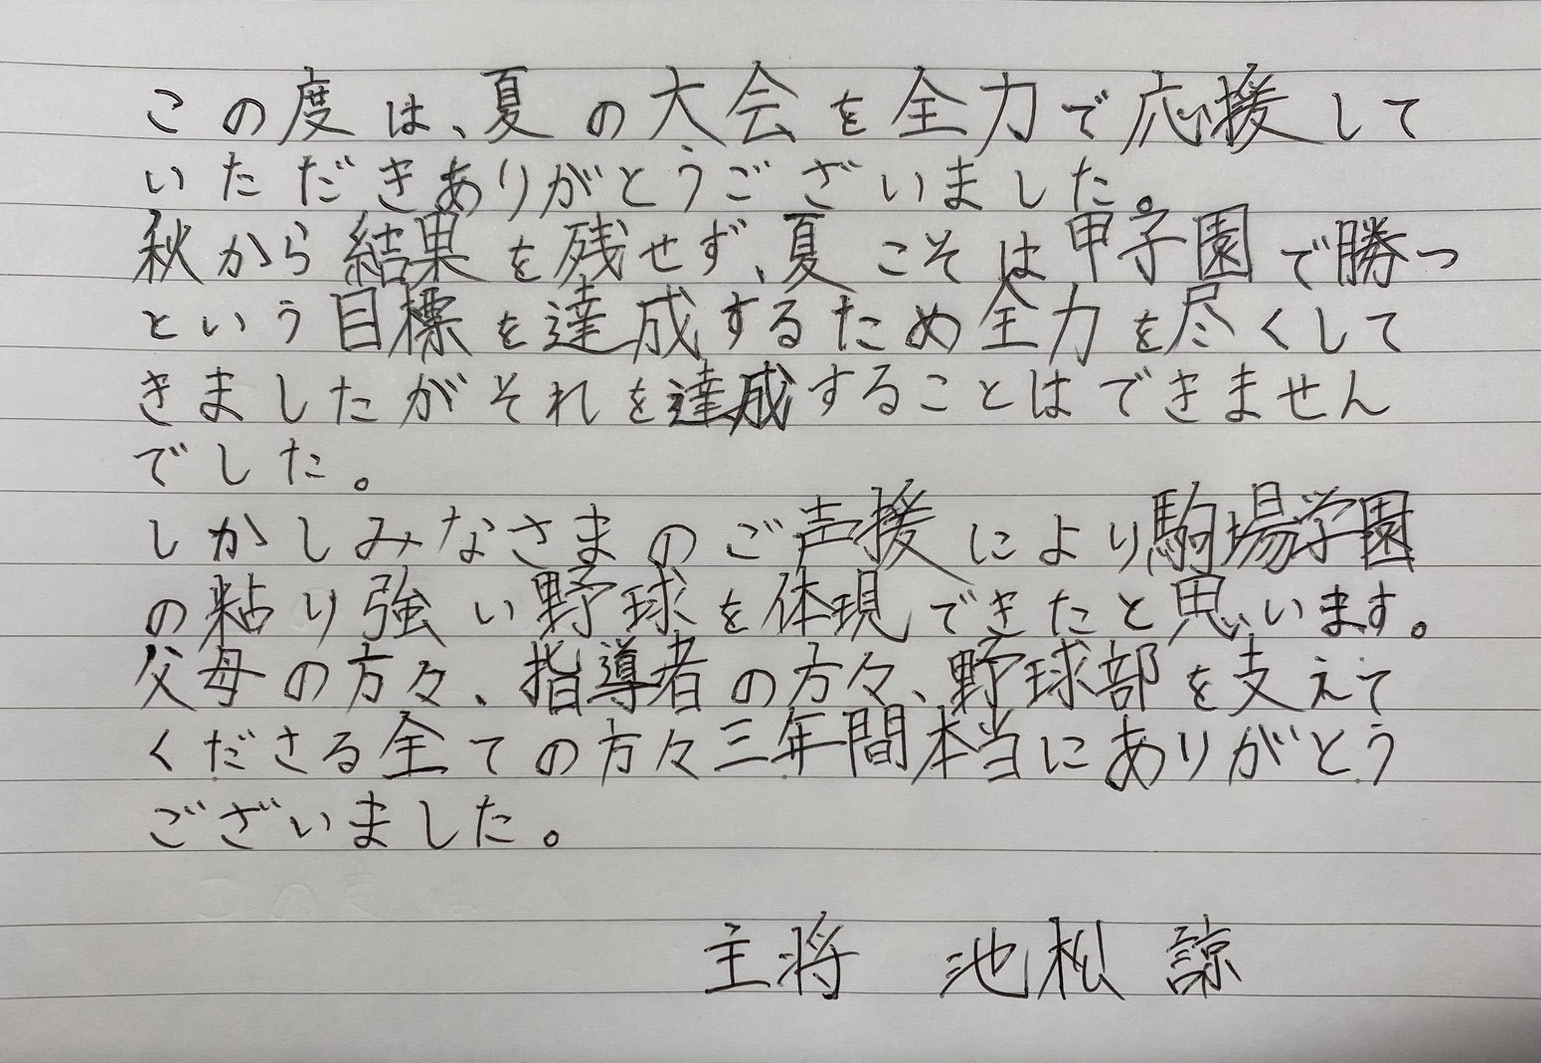 この度は、夏の大会を全力で応援して
いただきありがとうございました。
秋から結果を残せず、夏こそは甲子園で勝つ
という目標を達成するため全力を尽くして
きましたがそれを達成することはできません
でした。
しかしみなさまのご声援により駒場学園
の粘り強い野球を体現できたと思います。
父母の方々、指導者の方々、野球部を支えて
くださる全ての方々三年間本当にありがとう
ございました。
主将 池松 諒